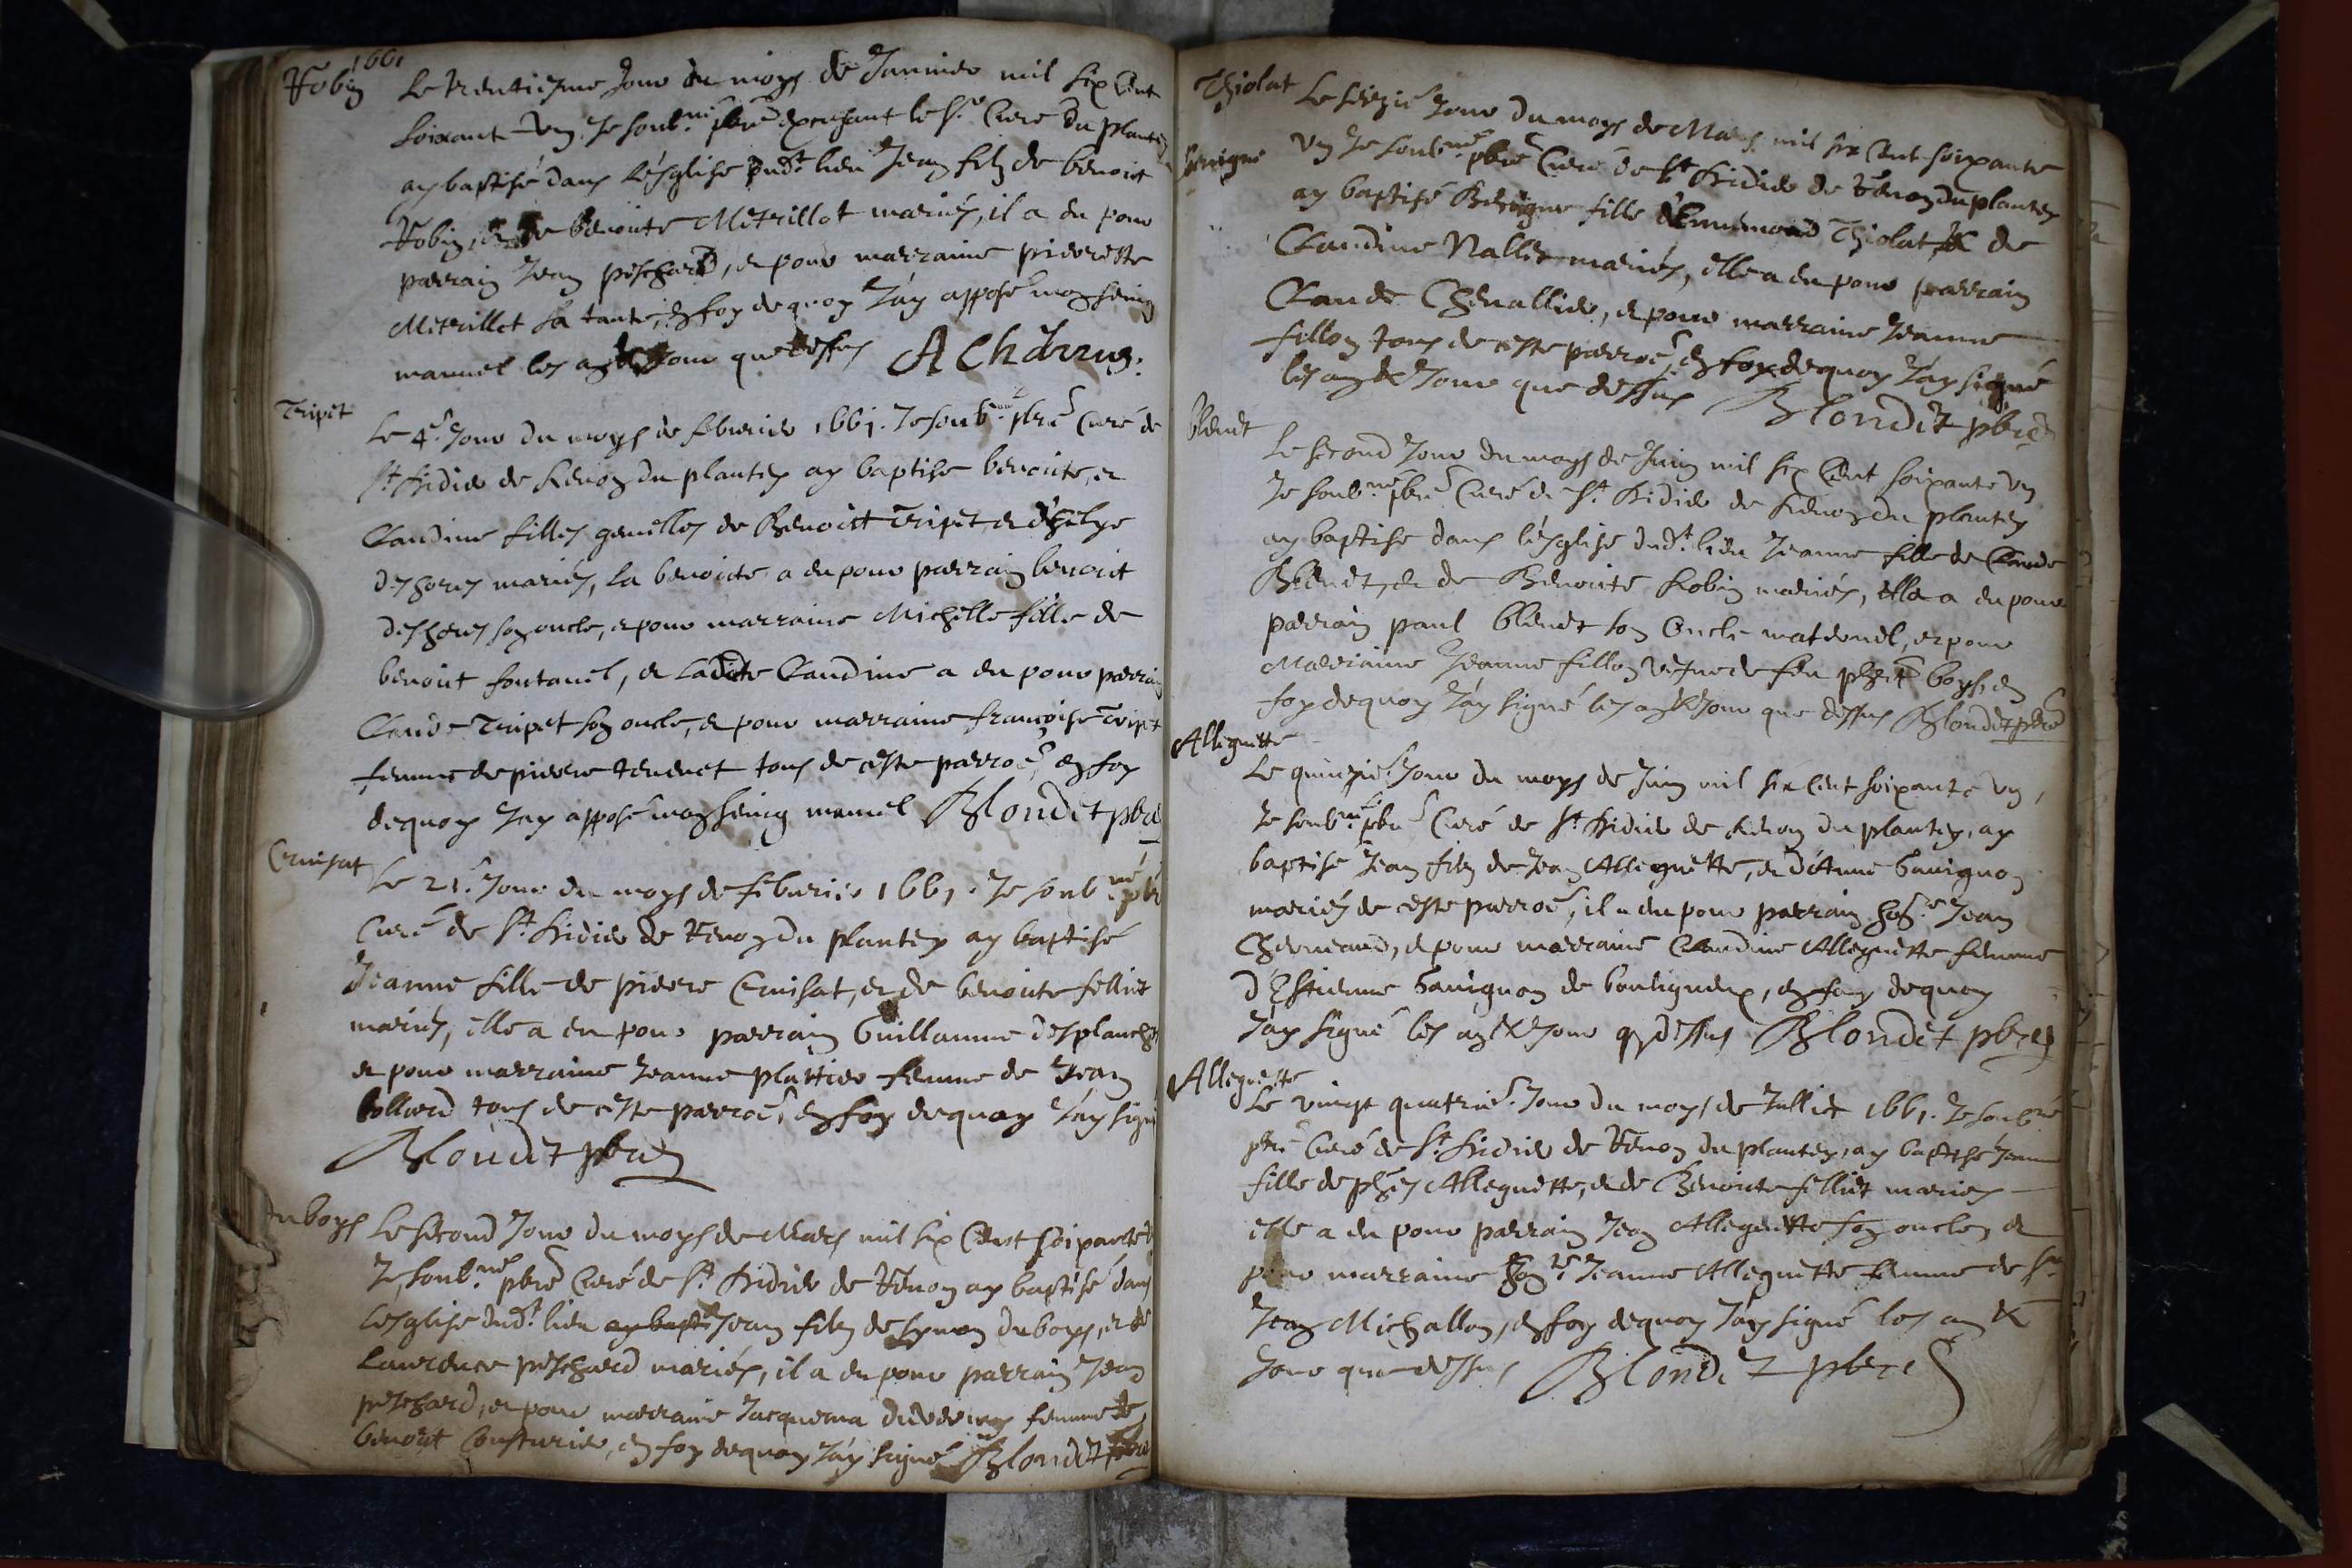 1661
Robin
Le trentiesme Jour du moys de Janvier mil six cent
soixant un. Je soub.né pbre excusant le Sr Curé du plantey
ay baptisé dans l'esglise dudt lieu Jean filz de benoict
Robin, et de benoite Metrillot mariés, il a eu pour
parrain Jean peschard, et pour marraine pierrette
Metrillot sa tante, en foy de quoy J'ay apposé mon seing
manuel les an & Jour que dessus
Tripet
Le 4e Jour du moys de febvrier 1661. Je soub.né pbre Curé de
St Didier de Renon du plantey ay baptise benoite, et
Claudine filles gemelles de Benoict Tripet et d'
mariés, la benoicte a eu pour parrain benoict
son oncle, et pour marraine Michelle fille de
benoit fontanel, et ladite Claudine a eu pour parrain
Claude Tripet son oncle, et pour marraine françoise Tripet
femme de pierre tenenet tous de ceste parroê, en foy
dequoy Jay apposé mon seing manuel Blondet pbre
Cruisat
Le 21e Jour du moys de febvrier 1661. Je soub.né pbr
Curé de St Didier de Renon du plantey ay baptisé
Jeanne fille de pierre Cruisat, et de benoite felliet
mariés, elle a eu pour parrain Guillaume desplanches
et pour marraine Jeanne plattier femme de Jean
tous de ceste parroê, en foy dequoy J'ay signé
Blondet pbre
Duboys
Le second Jour du moys de Mars mil six Cent soixante
Je soub.né pbre Curé de St Didier de Renon ay baptisé dans
Lesglise dudt lieu ay bapt Jean filz de Symon duboys, et de
Laurence peschard mariés, il a eu pour parrain Jean
peschard, et pour marraine Jacquema femme de
benoit Cousturier, en foy dequoy J'ay signé Blondet pbre
Thiolat
Le seizie Jour du moys de Mars mil six Cent soixante
un Je soub.né pbre Curé de St Didier de Renon du plantey
ay baptisé Benigne fille d'Ennemond Thiolat & de
Claudine Nallet mariés, elle a eu pour parrain
Claude Chevallier, et pour marraine Jeanne
fillon tous de ceste parroê, en foy dequoy J'ay signé
les an & Jour que dessus Blondet pbre
Blenet
Le second Jour du moys de Juin mil six Cent soixante un
Je soub.né pbre Curé de St Didier de Renon du plantey
ay baptise dans l'esglise dudt lieu Jeanne fille de Claude
Blenet, et de Benoite Robin mariés, elle a eu pour
parrain paul blenet son oncle maternel, et pour
Marraine Jeanne fillon vefve de feu boys, en
foy dequoy J'ay signé les an & Jour que dessus Blondet pbre
Alleguette
Le quinzie Jour du moys de Juin mil six Cent soixante un,
Je soub.né pbre Curé de St Didier de Renon du plantey, ay
baptise Jean filz de Jean Alleguette, et d'Anne Gavignon
mariés de ceste parroê, il a eu pour parrain hon.e Jean
et pour marraine Claudine Alleguette femme
d'Estienne Gavignon de bouligneux, en foy dequoy
J'ay signé les an & Jour q dessus Blondet pbre
Alleguette
Le vingt quatrie Jour du moys de Julliet 1661. Je soub.né
pbre Curé de St Didier de Renon du plantey, ay baptisé Jeanne
fille de Alleguette, et de Benoite felliet mariés
elle a eu pour parrain Jean Alleguette son oncle, et
pour marraine hon.e Jeanne Alleguette femme de Sr
Jean Michallon, en foy dequoy J'ay signé les an &
Jour que dessus Blondet pbre